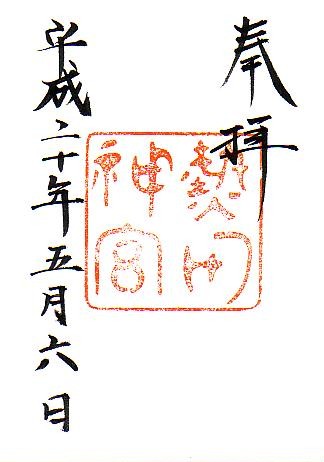 奉拝
熱田
神宮
平成二十年五月六日